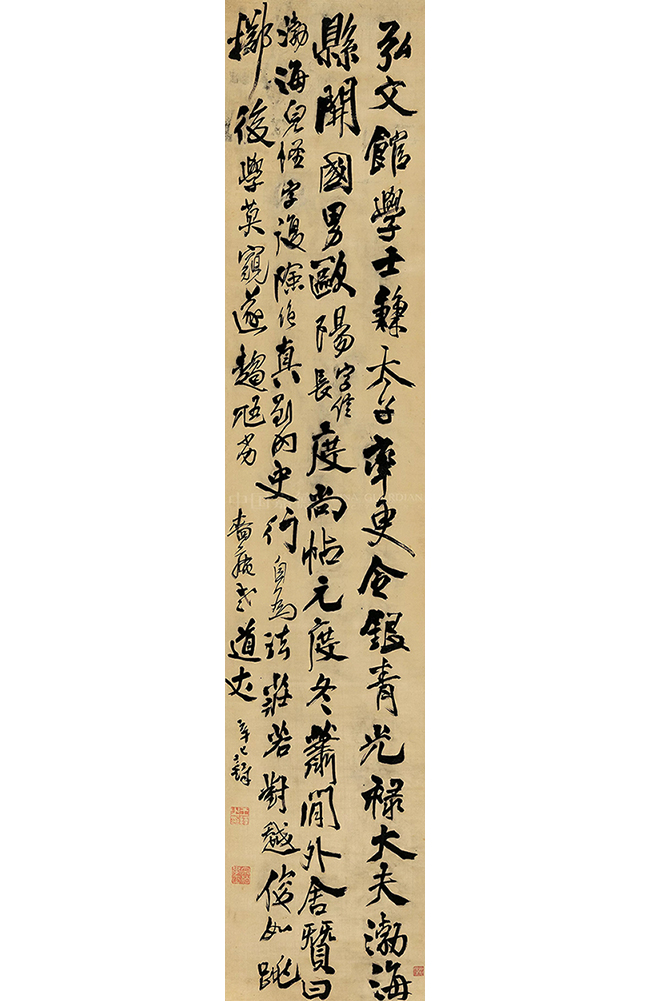 弘文館學士鎌太子率更令銀青光祿大夫渤海
縣開國男歐陽字信長度尚帖元度冬蕭閒外舍覽曰
渤海兒怪字復險絕真到內史行自為法莊若對越俊如跳
擲後學莫窺遂趨尪劣 道丈 辛巳鐸
GUARDIAN